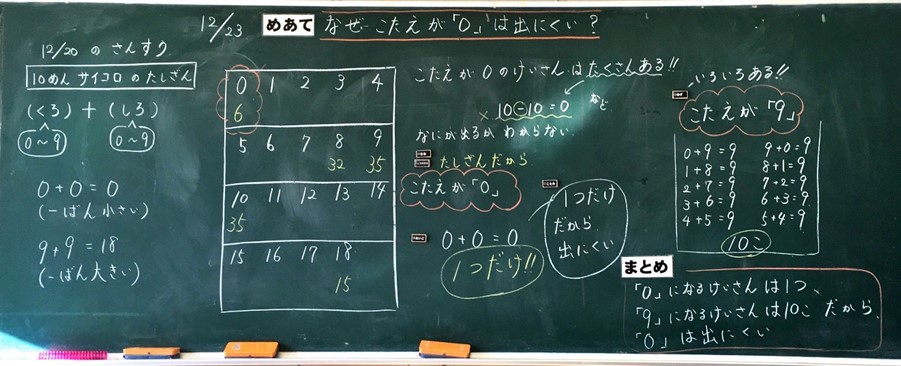 12/23
めあて なぜ こたえが「0」は出にくい?
12/20 のさんすう
10めん サイコロ の たしざん
(くろ) + (しろ)
0~9 0~9
0+0=0
(一ばん小さい)
9+9=18
(一ばん大きい)
0 1 2 3 4
6
5 6 7 8 9
32 35
10 11 12 13 14
35
15 16 17 18
15
こたえが 0 のけいさん は たくさんある!!
× 10-10=0 など
なにが出るか わからない
たしざんだから
こたえが「0」
0+0=0
1つだけ!!
1つだけ
だから
出にくい
いろいろある!!
こたえが「9」
0+9=9 9+0=9
1+8=9 8+1=9
2+7=9 7+2=9
3+6=9 6+3=9
4+5=9 5+4=9
10こ
まとめ
「0」になるけいさんは1つ、
「9」になるけいさんは10こ だから
「0」は出にくい